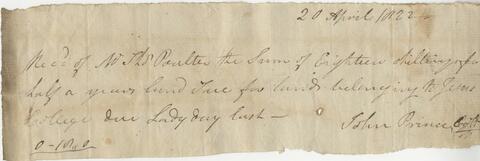 20 April 1822
Rec.d of Mr Thos Poulter the Sum of Eighteen shillings for
half a years Land Tax for lands belonging to Jesus
College due Lady Day last —
John Prince Coll.r
0-18-0